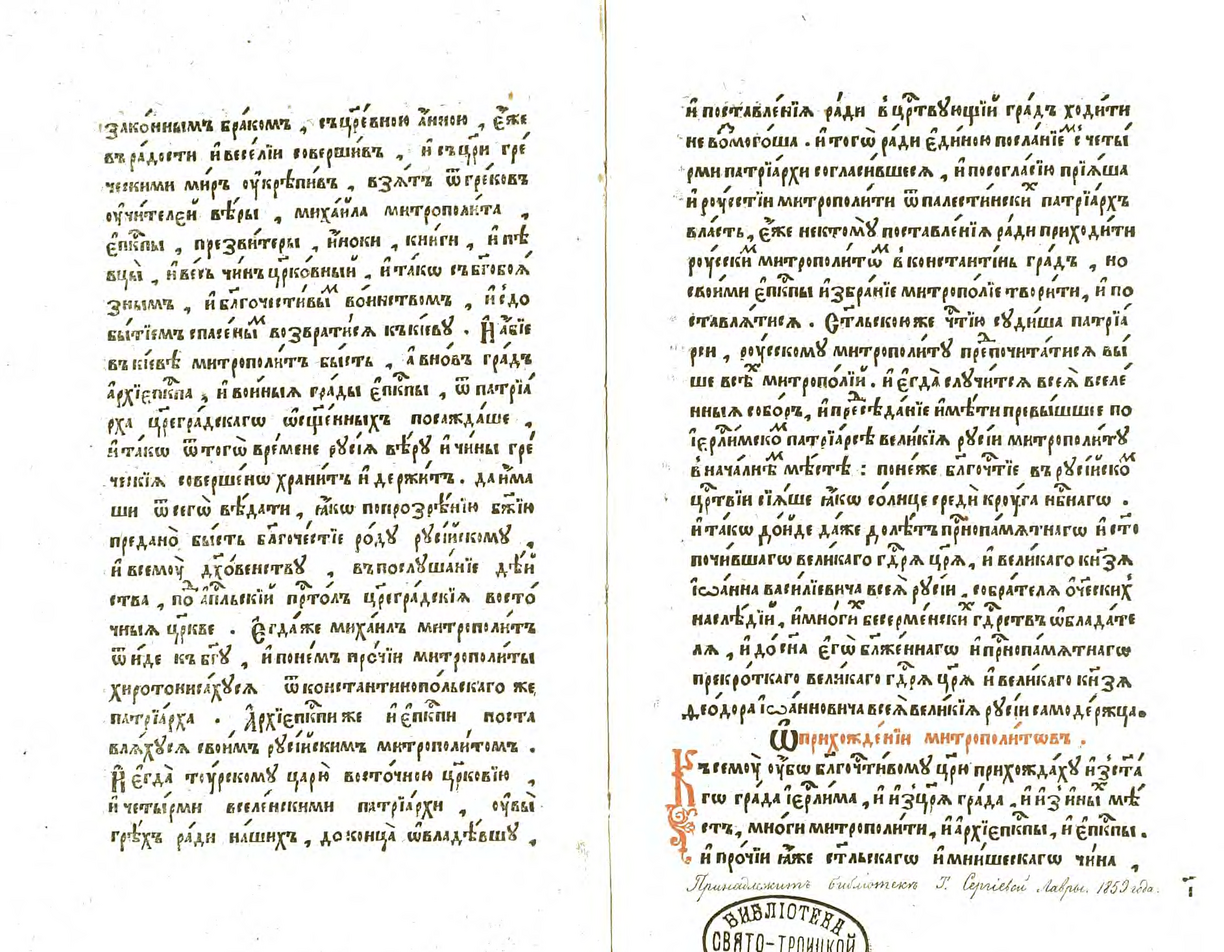 зако́ннымъ бра́комъ , съцр҃е́вною а҆́нною , є҆́же
въра́дости и҆весе́лїи соверши́въ , и҆съцр҃и гре́
ческими ми́ръ оу҆крѣпи́въ , взѧ́тъ ѿгре́ковъ
оу҆чи́телей вѣ́ры , михаи́ла митрополи́та ,
є҆пⷭ҇кпы , презви́теры , и҆́ноки , кни́ги , и҆пѣ
вцы̀ , и҆ве́сь чи́нъ цр҃ко́вный , и҆та́кѡ събг҃обоѧ́
знымъ , и҆бл҃гочести́выⷨ во́инствомъ , и҆сдо
бы́тїемъ спасе́ныⷨ возврати́сѧ къкі́еву . И҆а҆́бїе
въкі́евѣ митрополи́тъ бы́сть , авно́въ гра́дъ
а҆рхїепⷭ҇кпа , и҆во́иныѧ гра́ды є҆пⷭ҇кпы , ѿ патрїа́
рха цр҃егра́дскагѡ ѡ҆сщ҃е́нныхъ посажда́ше ,
и҆та́кѡ ѿтогѡ̀ вре́мене русі́ѧ вѣ́ру и҆чи́ны гре́
ческїѧ соверше́нѡ храни́тъ и҆де́ржитъ . даи҆́ма
ши ѿсегѡ̀ вѣ́дати , ꙗ҆́кѡ попрозрѣ́нїю бж҃їю
пре́дано бы́сть бл҃гоче́стїе ро́ду русі́йскому ,
и҆всемꙋ̀ дх҃ове́нству , впослуша́нїе дѣ́й
ства , поⷣ а҆пⷭ҇льскїй прⷭ҇то́лъ цр҃егра́дскїѧ восто́
чныѧ цр҃кве . Є҆гда́же михаи́лъ митрополи́тъ
ѿи́де къбг҃у , и҆поне́мъ про́чїи митрополи́ты
хиротониса́хусѧ ѿконстантинопо́льскаго же
патрїа́рха . А҆рхїепⷭ҇кпиже и҆є҆пⷭ҇кпи поста
влѧ́хусѧ свои́мъ русі́йскимъ митрополи́томъ .
И҆є҆гда̀ ту́рскому царю̀ восто́чною цр҃ковїю ,
и҆четы́рми вселе́нскими патрїа́рхи , оу҆вы̀
грѣ́хъ ра́ди на́шихъ , доконца̀ ѡ҆владѣ́вшу ,
и҆поставле́нїѧ ра́ди вцрⷭ҇твующїй гра́дъ ходи́ти
невомого́ша . и҆тогѡ̀ ра́ди є҆ди́ною посла́нїеⷨ счеты́
рми патрїа́рхи согласи́вшесѧ , и҆посогла́сїю прїѧ́ша
и҆роусті́и митрополи́ти ѿпалести́нскиⷯ патрїа́рхъ
вла́сть , є҆́же нектому̀ поставле́нїѧ ра́ди приходи́ти
роу́сскиⷨ митрополи́тѡⷨ вконстанті́нь гра́дъ , но
свои́ми є҆пⷭ҇кпы и҆збра́нїе митропо́лїе твори́ти , и҆по
ставлѧ́тисѧ . Ст҃льскоюже чⷭ҇тїю суди́ша патрїа́
рси , роу́сскому митрополи́ту преⷣпочита́тисѧ вы́
ше всѣⷯ митропо́лїй . и҆є҆гда̀ случи́тсѧ всеѧ̀ вселе́
нныѧ собо́ръ , и҆преⷣсѣда́нїе и҆мѣ́ти превы́шшее по
і҆ерⷭ҇ли́мскоⷨ патрїа́рсѣ вели́кїѧ русі́и митрополи́ту
внача́лнѣⷨ мѣ́стѣ : поне́же бл҃гочⷭ҇тїе върусі́йскоⷨ
црⷭ҇твїи сїѧ́ше ꙗ҆́кѡ со́лнце средѝ кроу́га нбⷭ҇нагѡ .
и҆та́кѡ до́йде да́же долѣ́тъ прⷭ҇нопа́мѧтнагѡ и҆сто
почи́вшаго вели́каго гдⷭ҇рѧ цр҃ѧ̀ , и҆вели́каго кн҃зѧ
і҆ѡа́нна васи́лїевича всеѧ̀ русі́и . собра́телѧ ѻ҆ч҃ескихъ
наслѣ́дїй , и҆мно́гиⷯ бесерме́нскиⷯ гдⷭ҇рствъ ѡ҆блада́те
лѧ , и҆досн҃а є҆гѡ̀ бл҃же́ннагѡ и҆прⷭ҇нопа́мѧтнагѡ
прекро́ткаго вели́каго гдⷭ҇рѧ цр҃ѧ̀ и҆вели́каго кн҃зѧ
ѳео́дора і҆ѡа́нновича всеѧ̀ вели́кїѧ русі́и самоде́ржца .
Ѡ҆прихожде́нїи митрополи́тѡвъ .
Къ семꙋ̀ оу҆́бѡ бл҃гочⷭ҇ти́вому цр҃ю прихожда́ху и҆з̾ста́
гѡ гра́да і҆ерⷭ҇ли́ма , и҆и҆з̾цр҃ѧ гра́да , и҆и҆з̾и҆ны́ⷯ мѣ́
стъ , мно́ги митрополи́ти , и҆а҆рхїепⷭ҇кпы , и҆є҆пⷭ҇кпы .
и҆про́чїи ꙗ҆́же ст҃льскагѡ и҆мни́шескагѡ чи́на ,
Принадлежитъ библіотекѣ Т. Сергіевой Лавры. 1859 года.
БИБЛІОТЕКА
СВЯТО-ТРОИЦКОЙ